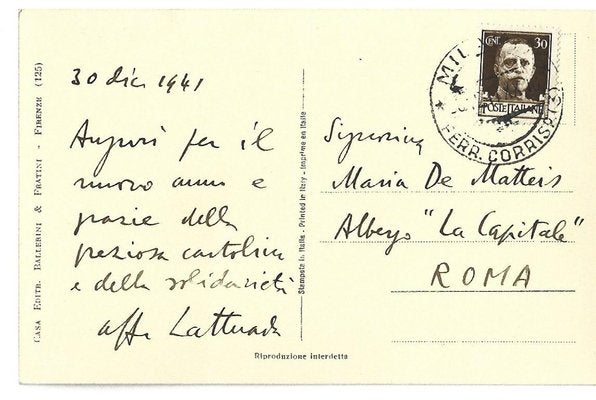 30 dic 1941
Auguri per il
nuovo anno e
grazie della
preziosa cartolina
e della solidarietà
aff. Lattuada
Signorina
Maria De Matteis
Albergo "La Capitale"
ROMA
CENT. 30
POSTE ITALIANE
FERR. CORRISP.
CASA EDITR. BALLERINI & FRATINI - FIRENZE (125)
Stampata in Italia - Printed in Italy - Imprimé en Italie
Riproduzione interdetta